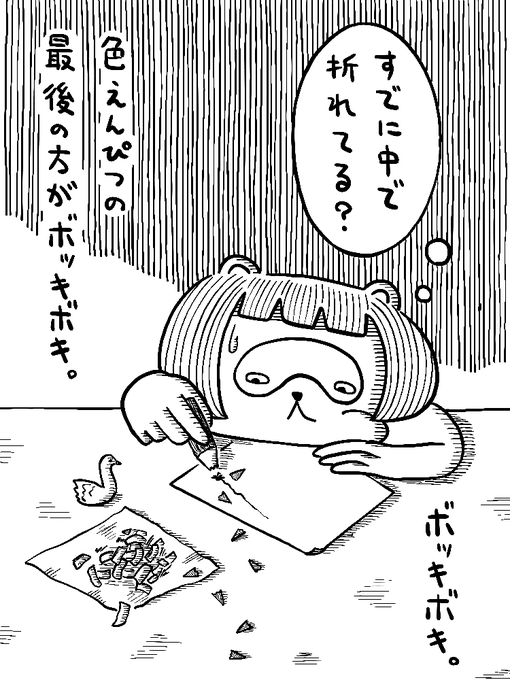 すでに中で
折れてる?
色えんぴつの
最後の方がボッキボキ。
ボッキボキ。